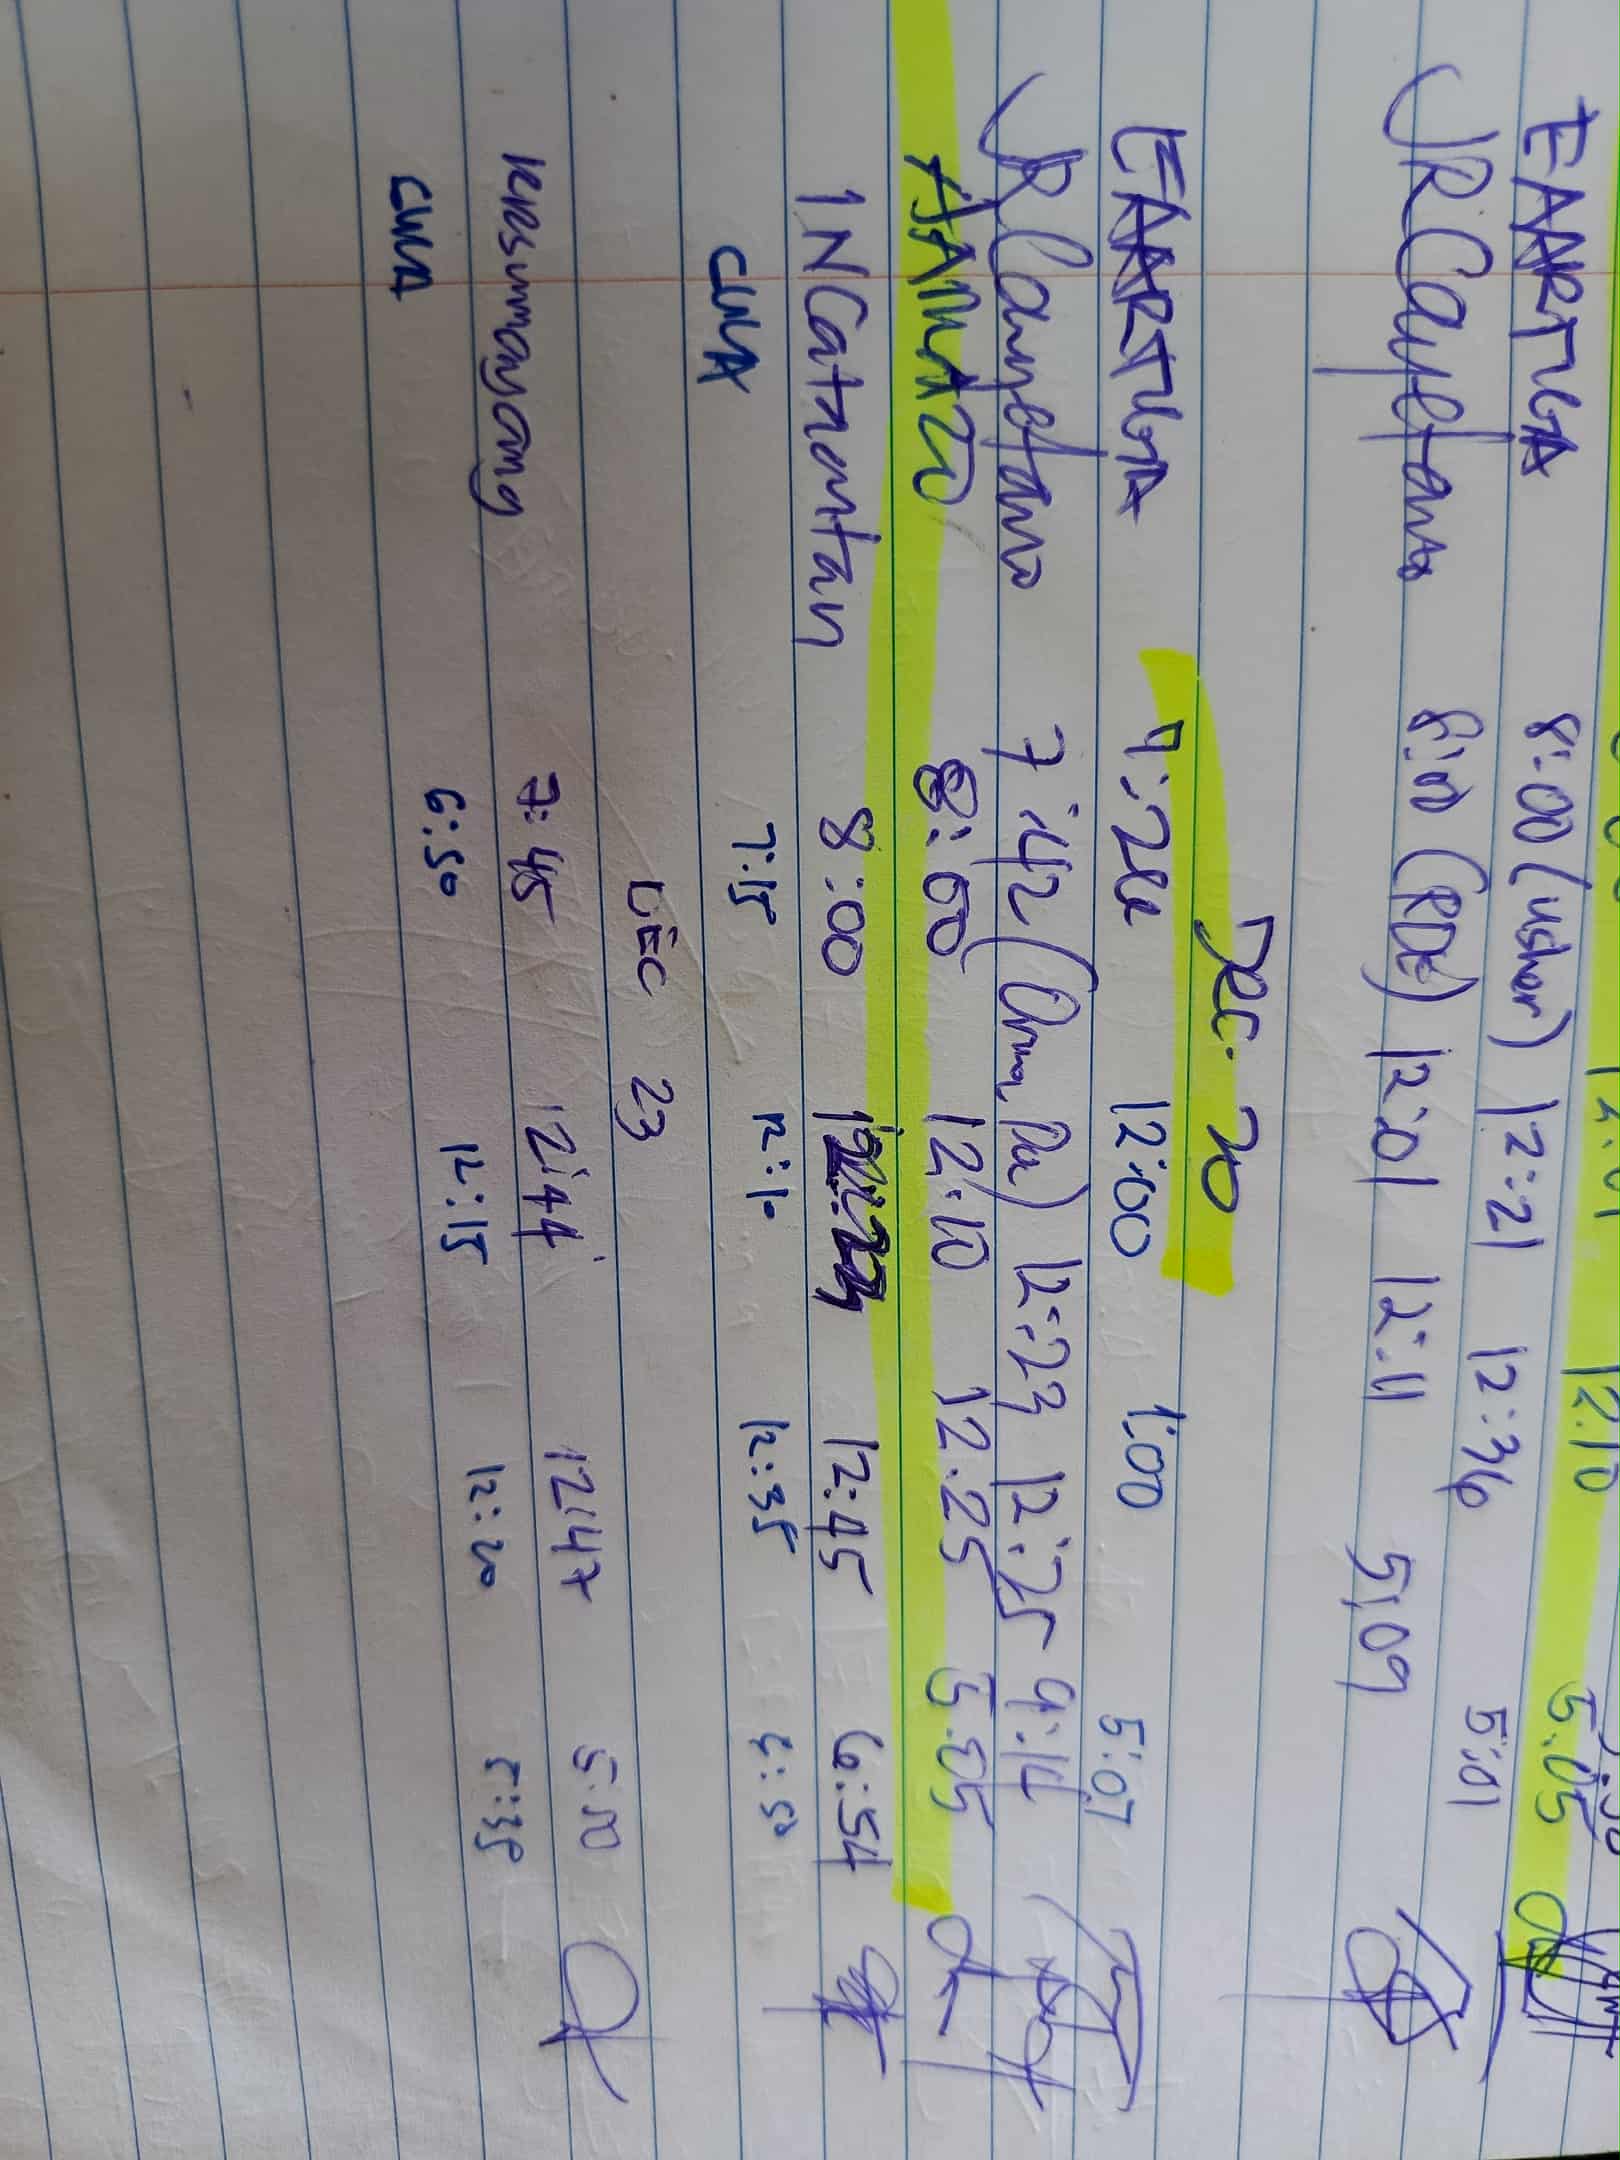 12:10 5:05
EAARTUGA 8:00 (usher) 12:21 12:36 5:01
JRCayetano 8:00 (RDE) 12:01 12:11 5:09
Dec. 20
EAARTUGA 12:00 1:00 5:07
JRCayetano 7:42 12:23 12:25 9:14
8:00 12:10 12:25 5:05
INCatanentan 8:00 12:45 6:54
CUNA 7:15 12:10 12:35 5:50
DEC 23
7:45 12:44 12:47 5:00
CUNA 6:50 12:15 12:20 5:35